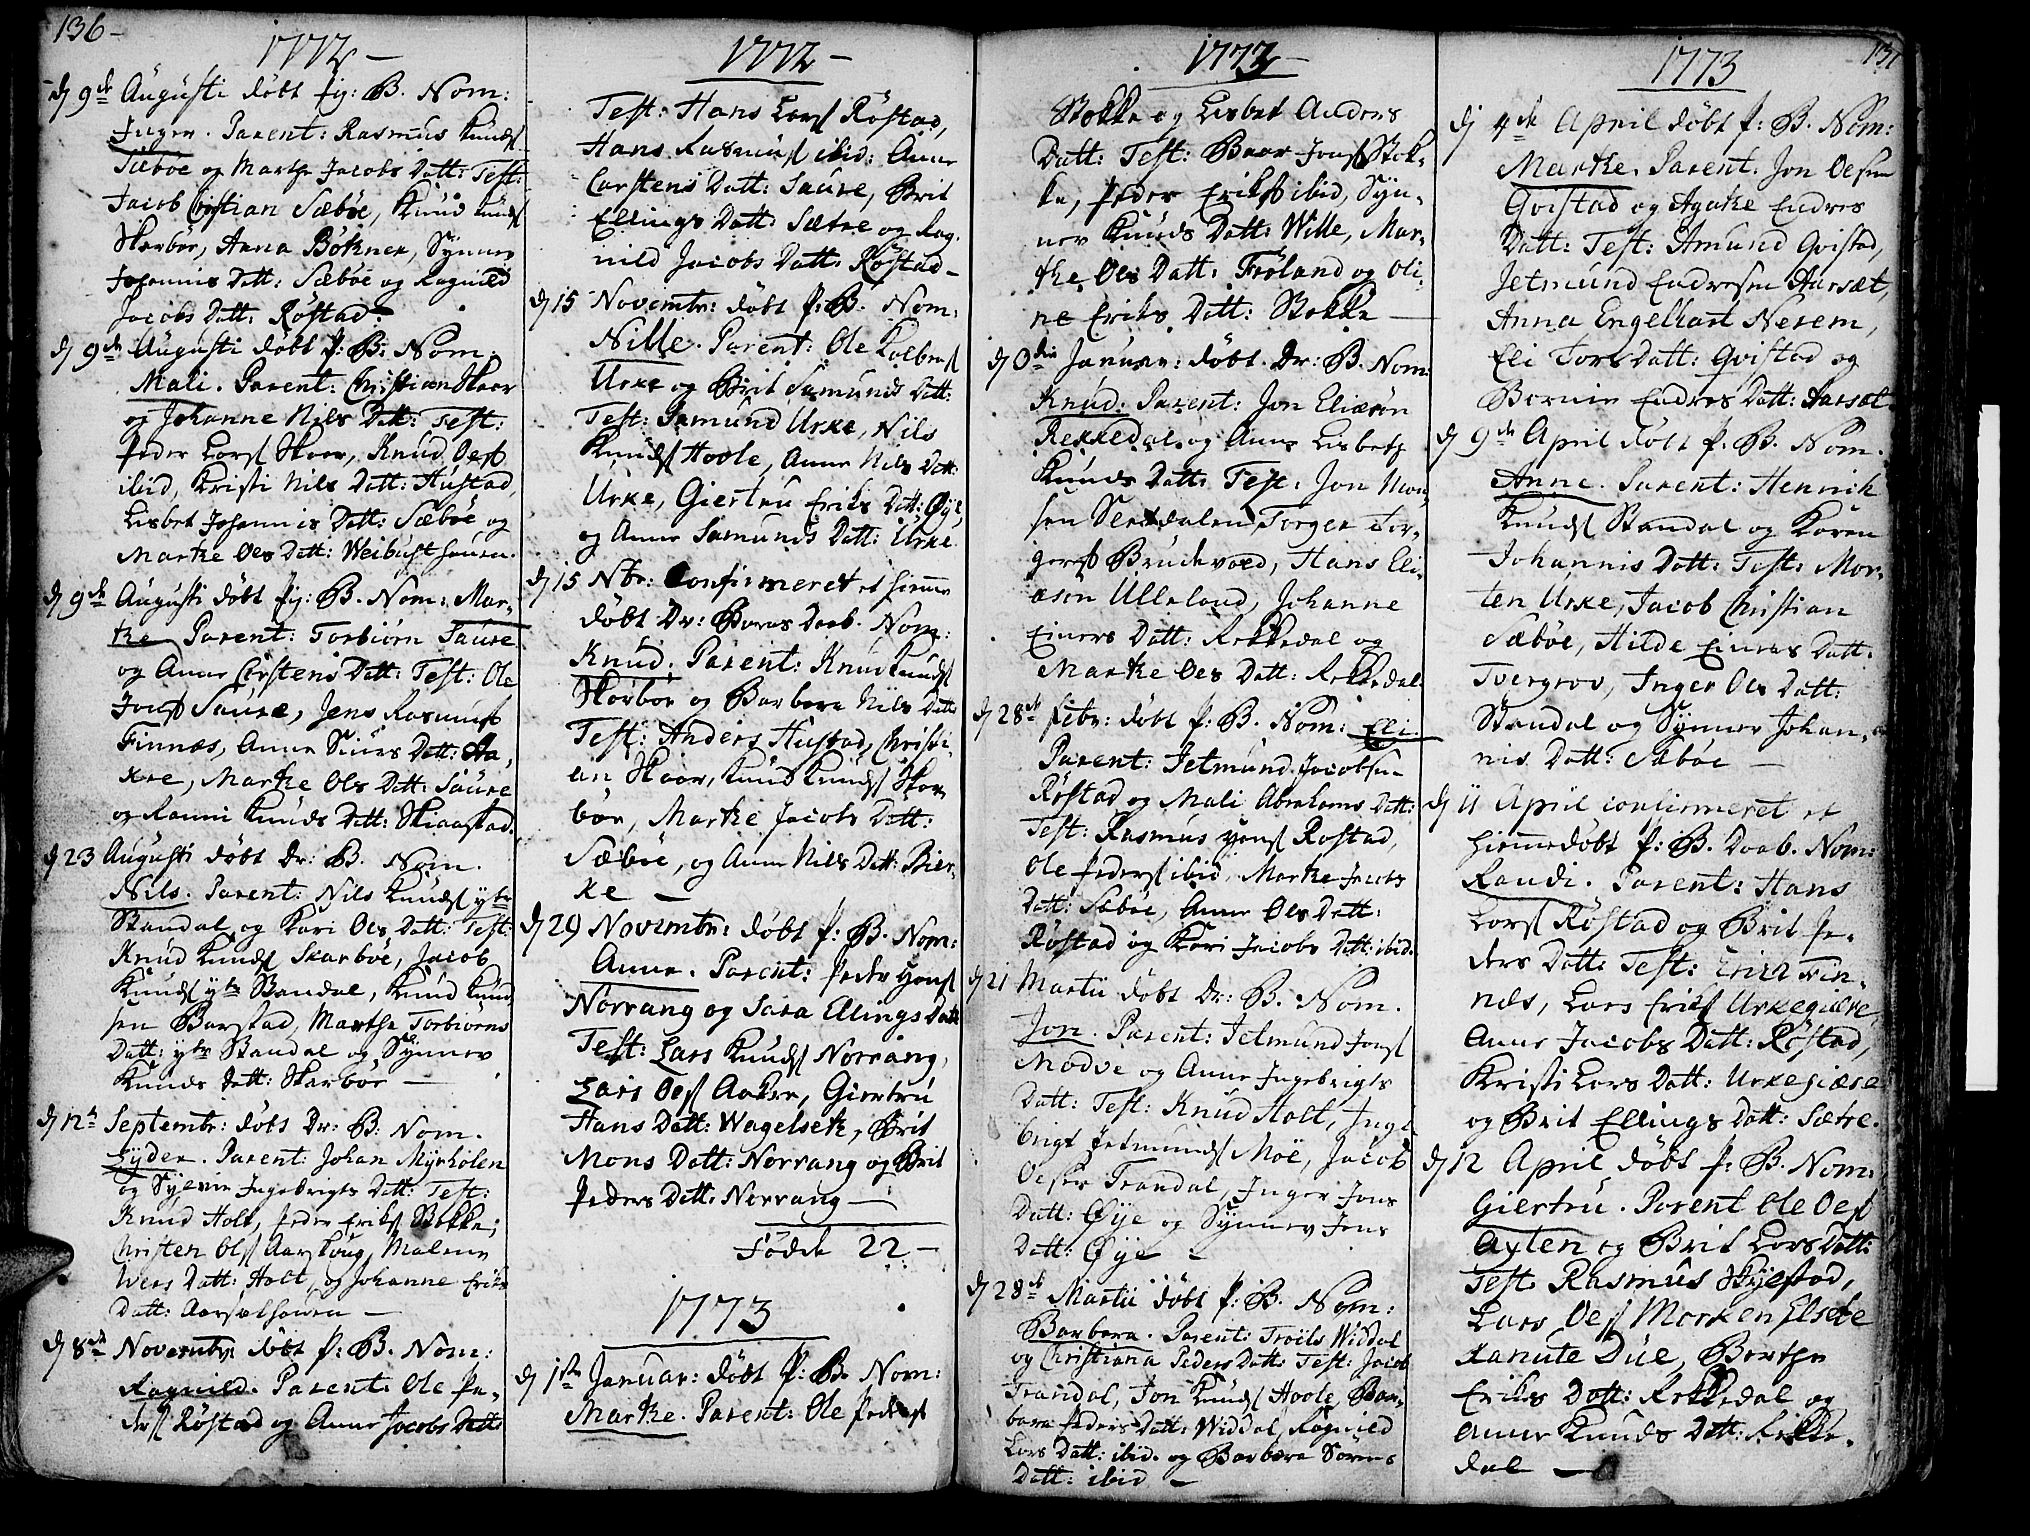 136-
1772-
d 9de Augusti döbt fg: B. Nom:
Inger. Parent: Rasmus Knuds
Sæbøe og Marthe Jacobs Datt: Test:
Jacob Cristian Sæbøe, Knud Knuds
Skarbør, Anna Bökner, Synnev
Johannis Datt: Sæbøe og Ragnild
Jacobs Datt: Röstad
d 9de Augusti döbt f: B: Nom.
Mali. Parent: Christian Skaar
og Johanne Nils Datt: Test:
Peder Lars Skaar, Knud Oes
ibid, Kristi Nils Datt: Hustad,
Lisbet Johannis Datt: Sæbøe og
Marke Oles Datt: Weibust houen.
d 9de Augusti döbt fg: B. Nom: Mar-
the Parent: Torbiörn Saure
og Anne Carstens Datt: Test: Ole
Jons Saure, Jens Rasmus
Finnæs, Anne Siurs Datt: Aa,
kre, Marke Ols Datt: Saure
og Ranni Knuds Datt: Skiaastad.
d 23 Augusti döbt Dr: B. Nom.
Nils. Parent: Nils Knuds ytr
Standal og Kari Oles Datt: Test:
Knud Knuds Skarbøe, Jacob
Knuds ytr Standal, Knud Knud
sen Barstad, Marthe Torbiörns
Datt: ytr Standal og Synnev
Knuds Datt: Skarbør
d 12te Septembr: döbt Dr: B: Nom.
Syder. Parent: Johan Myrholen
og Syevin Ingebrigts Datt: Test:
Knud Holt, Peder Eriks Stokke,
Christen Ols Aarskoug, Malene
Ivers Datt: Holt, og Johanne Eriks
Datt: Aarsæthouen
d 8de Novembr: döbt f: B. Nom:
Ragnild. Parent: Ole Pe-
ders Röstad og Anne Jacobs Datt:
1772-
Test: Hans Lars Röstad,
Hans Rasmus ibid: Anne
Carstens Datt: Saure, Brit
Ellings Datt: Sætre og Rag-
nild Jacobs Datt: Röstad-
d 15 Novembr: döbt f: B. Nom:
Nille. Parent: Ole Kolbens
Urke og Brit Samunds Datt:
Test: Samund Urke, Nils
Knuds Hoole, Anne Nils Datt:
Urke, Giertru Eriks Datt: Øye
og Anne Samunds Datt: Urke.
d 15 Nbr: Confirmeret et hiemme
döbt Dr: Barns Daab. Nom:
Knud. Parent: Knud Knuds
Skorbør og Barbara Nils Datt:
Test: Anders Hustad, Christi-
an Skaar, Knud Knuds Skor
bør, Marke Jacobs Datt:
Sæbøe, og Anne Nils Datt: Bier-
ke
d 29 Novembr: döbt f: B. Nom:
Anne. Parent: Peder Hans
Norrang og Sara Ellings Datt
Test: Lars Knuds Norrang,
Lars Oes Aakre, Giertru
Hans Datt: Wagelset, Brit
Mons Datt: Norrang og Brit
Peders Datt: Norrang
Fødde 22-
1773
d 1ste Januar: döbt f: B. Nom:
Marke. Parent: Ole Peders
1773-
Stokke og Lisbet Anders
Datt: Test: Baar Jons Stok-
ke, Peder Eriks ibid, Syn-
nev Knuds Datt: Wille, Mar-
the Ols Datt: Fröland og Oli-
ne Eriks Datt: Stokke
d 0den Januar: döbt Dr: B. Nom:
Knud: Parent: Jon Eliæsön
Rekkedal og Anne Lisbeth
Knuds Datt: Test: Jon Mon-
sen Sletdalen, Torger Tor-
gers Brudevold, Hans Eli-
æsen Ulleland, Johanne
Einers Datt: Rekkedal og
Marke Oles Datt: Rekkedal.
d 28de febr: döbt f: B. Nom: Eli.
Parent: Jetmund Jacobsen
Röstad og Mali Abrahams Datt:
Test: Rasmus Hans Rostad,
Ole Peders ibid, Marke Jacobs
Datt: Sæbøe, Anne Ols Datt:
Röstad og Kari Jacobs Datt: ibid.
d 21 Martii döbt Dr: B. Nom.
Jon. Parent: Jetmund Jons
Modve og Anne Ingebrigts
Datt: Test: Knud Holt, Inge
brigt Jetmunds Moe, Jacob
Oesen Trandal, Inger Jons
Datt: Øye og Synnev Jens
Datt: Øye
d 28de Martii döbt f: B. Nom:
Barbara. Parent: Troels Widdal
og Christiana Peders Datt: Test: Jacob
Trandal, Jon Knuds Hoole, Bar-
bara Peders Datt: Widdal, Ragnild
Lars Datt: ibid. og Barbara Sörens
Datt: ibid
137
1773
d 4de April döbt f: B. Nom:
Marke. Parent: Jon Oesen
Qvistad og Agathe Endres
Datt: Test: Amund Qvistad,
Jetmund Endresen Aarsæt,
Anna Engelhart Nerem,
Eli Tors Datt: Qvistad og
Bornin Endres Datt: Aarsæt
d 9de April döbt f: B. Nom.
Anne. Parent: Henrich
Knuds Standal og Karen
Johannis Datt: Test: Mor-
ten Urke, Jacob Christian
Sæbøe, Hilde Einers Datt:
Tvergrov, Inger Ols Datt:
Standal og Synnev Johan-
nis Datt: Sæbøe
d 11 April confirmeret et
hiemmedöbt f: B. Daab. Nom:
Randi. Parent: Hans
Lars Röstad og Brit Pe-
ders Datt: Test: Erich Fin-
næs, Lars Eriks Urkegiære,
Anne Jacobs Datt: Röstad,
Kristi Lars Datt: Urkegiære
og Brit Ellings Datt: Sætre.
d 12 April döbt f: B. Nom:
Giertru. Parent Ole Oes
Ayten og Brit Lars Datt:
Test: Rasmus Skyestad,
Lars Oes Morken Elsebe
Kanute Düe, Berthe
Eriks Datt: Rekkedal og
Anne Knuds Datt: Rekke-
dal